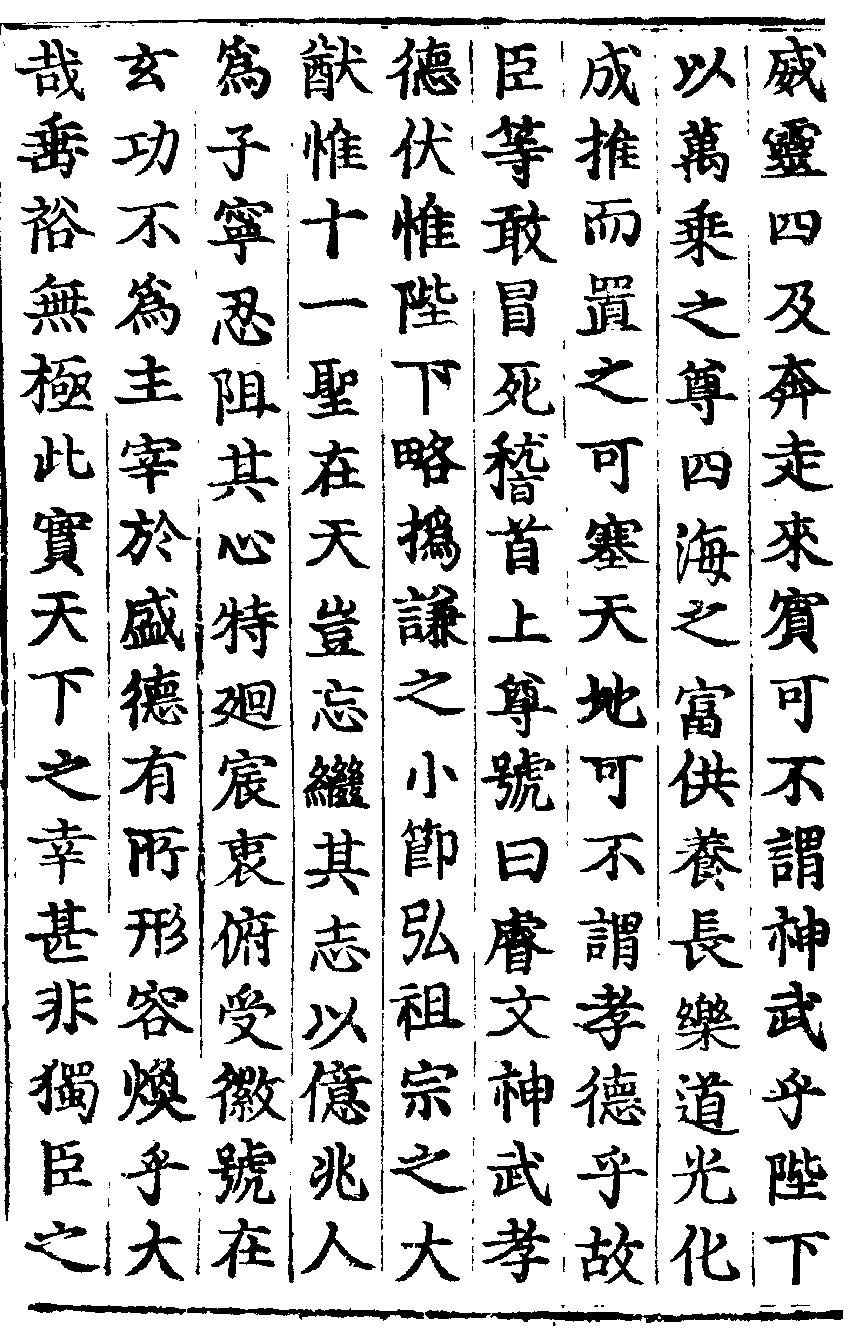 威靈四及奔走來賓可不謂神武乎陛下
以萬乘之尊四海之富供養長樂道光化
成推而置之可塞天地可不謂孝德乎故
臣等敢冒死稽首上尊號曰睿文神武孝
德伏惟陛下略撝謙之小節弘祖宗之大
猷惟十一聖在天豈忘繼其志以億兆人
爲子寧忍阻其心特廻宸衷俯受徽號在
玄功不爲主宰於盛德有所形容煥乎大
哉垂裕無極此實天下之幸甚非獨臣之